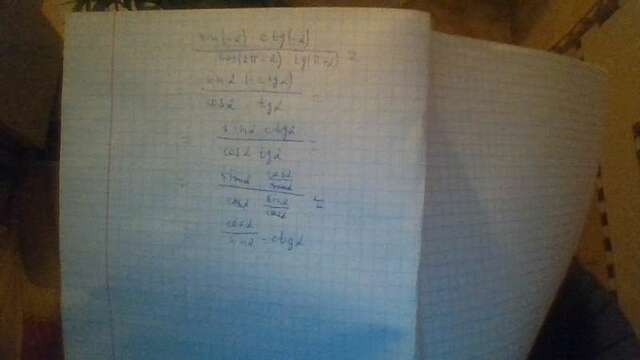 sin(-α) · ctg(-α)
cos(2π-α) tg(π+α) =
sinα (-ctgα)
cosα tgα =
= sinα ctgα
cosα tgα =
= sinα cosα/sinα
cosα sinα/cosα =
cosα/sinα = ctgα